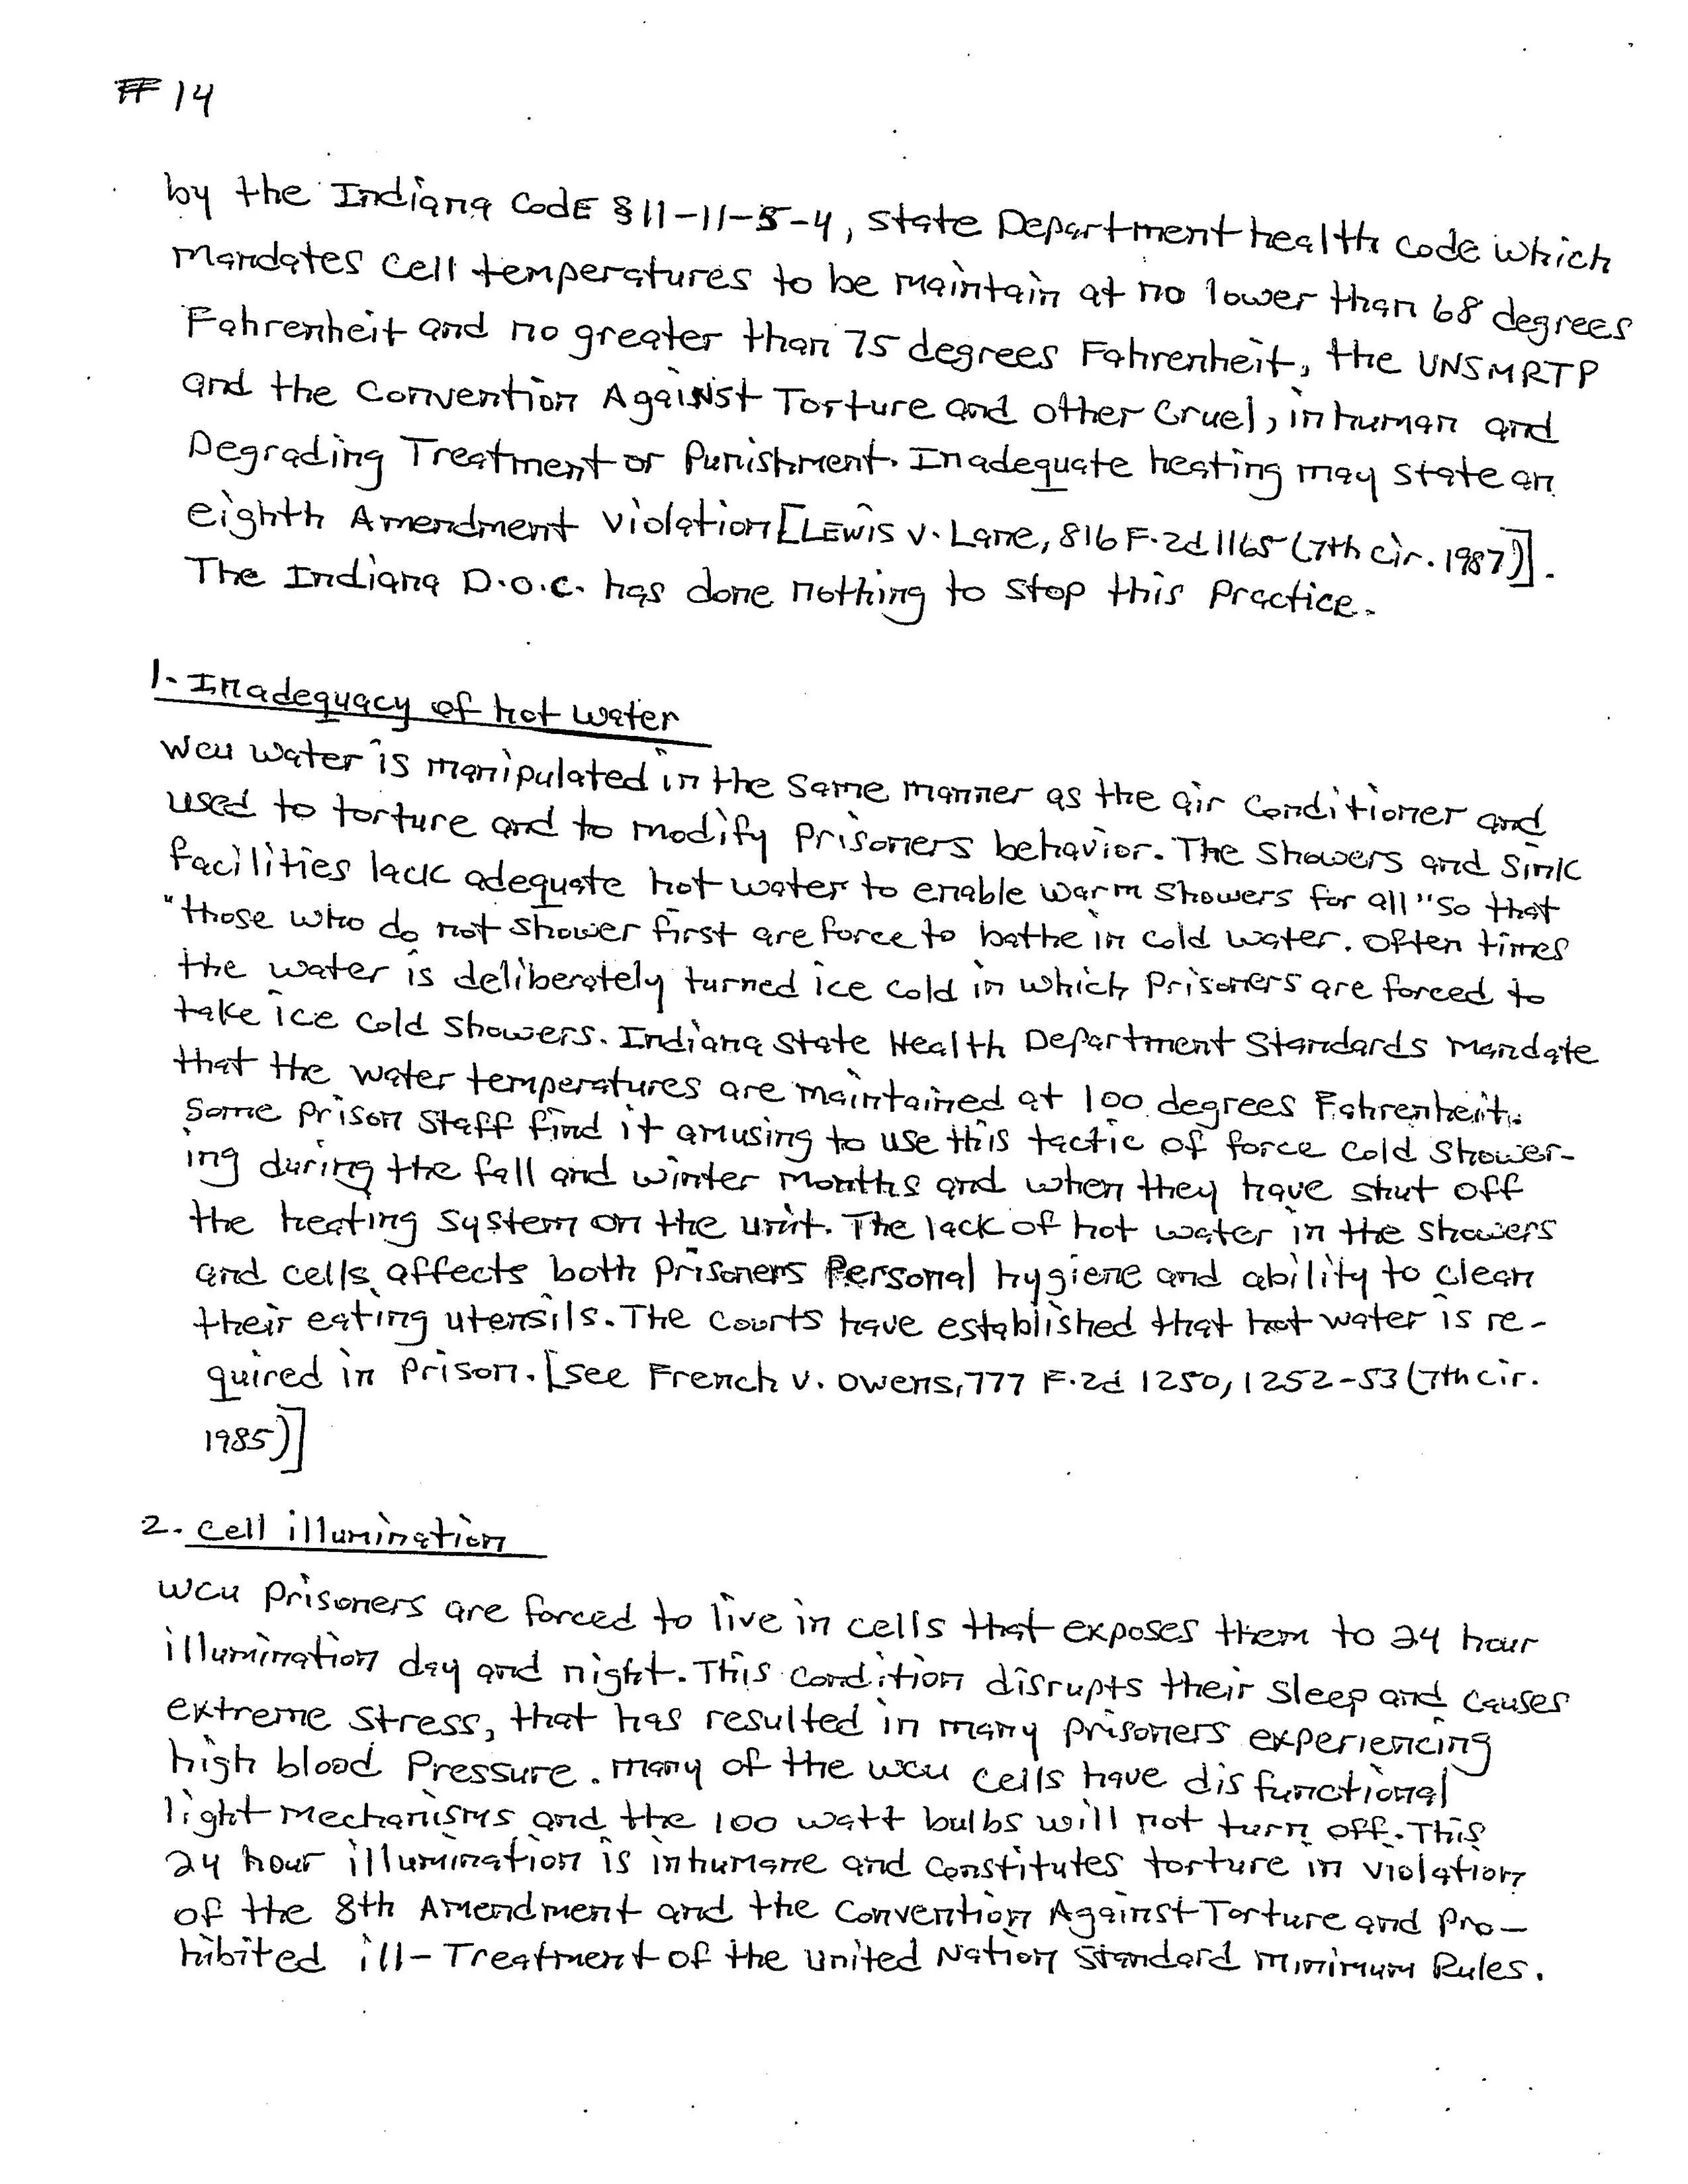 # 14
by the Indiana CodE § 11-11-5-4, state Department health code which
mandates cell temperatures to be maintain at no lower than 68 degrees
Fahrenheit and no greater than 75 degrees Fahrenheit, the UNSMRTP
and the Convention Against Torture and other Cruel, inhuman and
Degrading Treatment or Punishment. Inadequate heating may state an
eighth Amendment violation [LEWIS v. Lane, 816 F.2d 1165 (7th cir. 1987)].
The Indiana D.O.C. has done nothing to stop this Practice.
1. Inadequacy of hot water
WCU water is manipulated in the same manner as the air conditioner and
used to torture and to modify prisoners behavior. The showers and sink
facilities lack adequate hot water to enable warm showers for all "so that
"those who do not shower first are force to bathe in cold water. Often times
the water is deliberately turned ice cold in which Prisoners are forced to
take ice cold showers. Indiana State Health Department Standards Mandate
that the water temperatures are maintained at 100 degrees Fahrenheit.
Some prison staff find it amusing to use this tactic of force cold shower-
ing during the fall and winter months and when they have shut off
the heating system on the unit. The lack of hot water in the showers
and cells affects both prisoners Personal hygiene and ability to clean
their eating utensils. The courts have established that hot water is re-
quired in prison. [see French v. Owens, 777 F.2d 1250, 1252-53 (7th cir.
1985)]
2. cell illumination
WCU Prisoners are forced to live in cells that exposes them to 24 hour
illumination day and night. This condition disrupts their sleep and causes
extreme stress, that has resulted in many prisoners experiencing
high blood Pressure. many of the WCU cells have disfunctional
light mechanisms and the 100 watt bulbs will not turn off. This
24 hour illumination is inhumane and constitutes torture in violation
of the 8th Amendment and the Convention Against Torture and Pro-
hibited ill-Treatment of the United Nation Standard Minimum Rules.